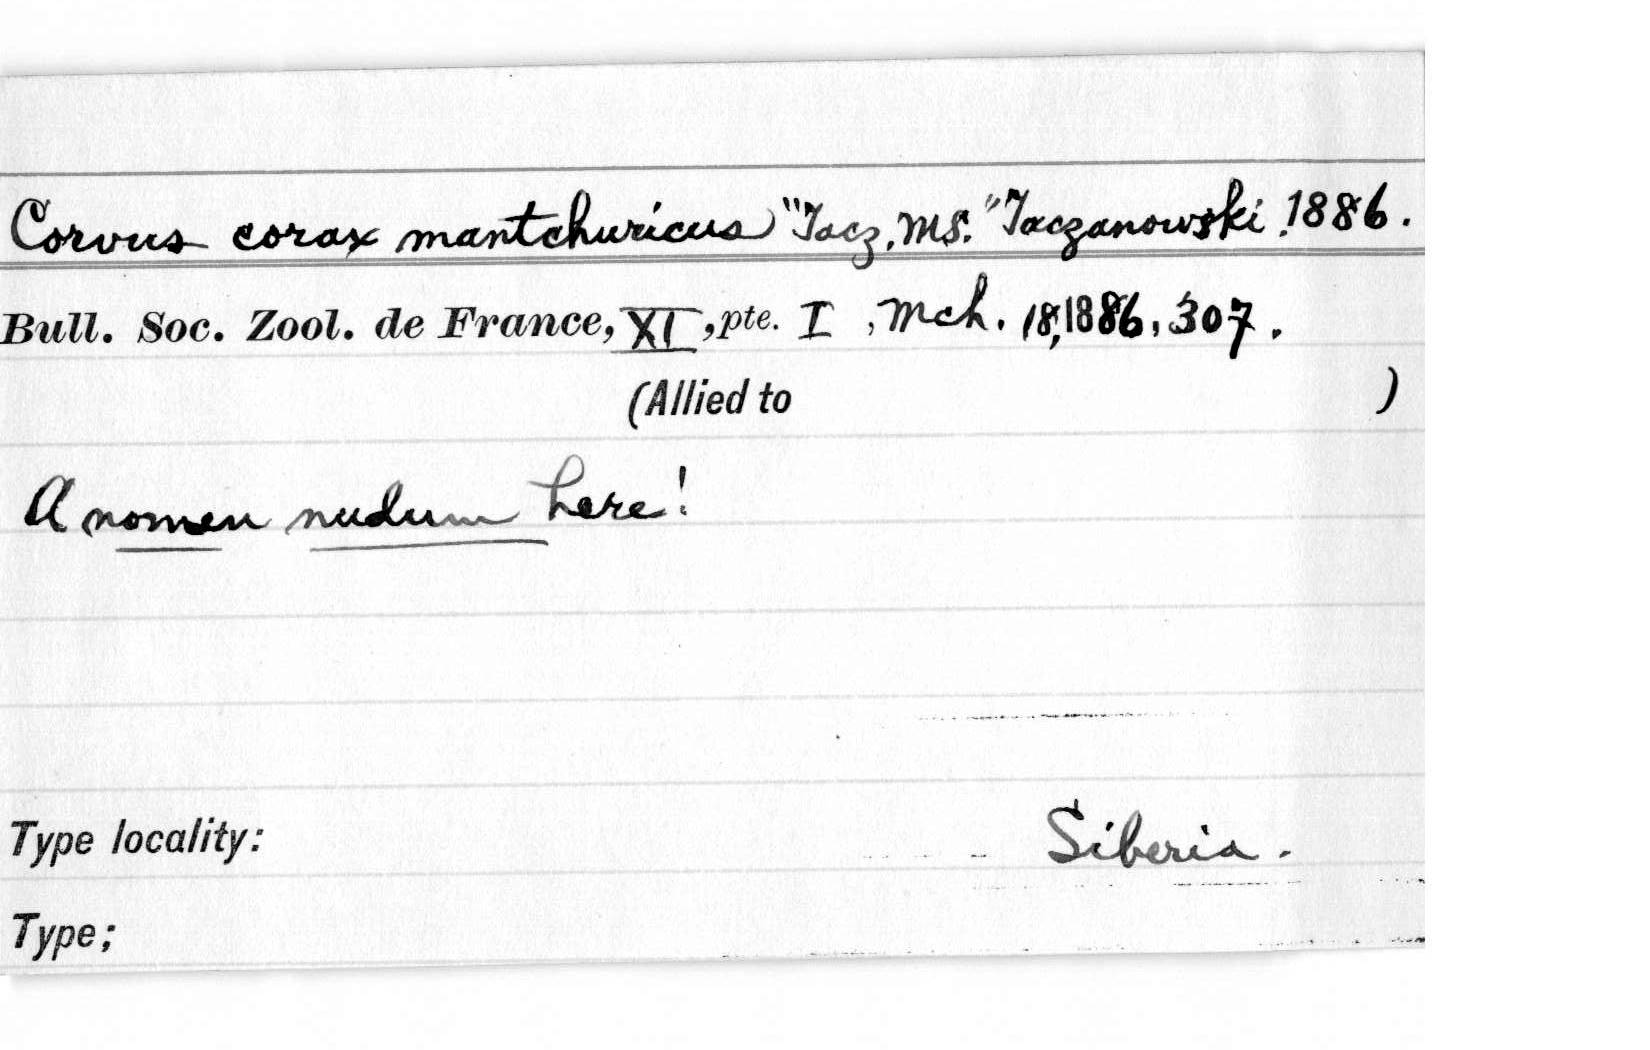 Corvus corax mantchuricus "Tacz. MS." Taczanowski, 1886.
Bull. Soc. Zool. de France, XI, pte. I, Mch. 18, 1886, 307.
(Allied to )
A nomen nudum here!
Type locality: Siberia.
Type;